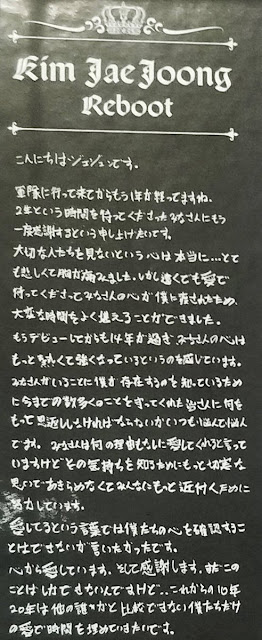 Kim Jae Joong
Reboot
こんにちはジェジュンです。
軍隊に行って来てからもう1年が経ってますね。
2年という時間を待ってくださったみなさんにもう
一度感謝するという申し上げたいです。
大切な人たちを見ないという心は本当に...とて
も悲しくて胸が痛みました。しかし遠くでも愛で
待ってくださってみなさんの心が僕に渡されたため、
大変な時間をよく越えることができました。
もうデビューしてからも14年が過ぎ、みなさんの心は
もっと熱くて強くなっているというのを感じています。
みなさんがいることに僕が存在するのを知っているため
に今までの数多くのことを守ってくれた皆さんに何を
もって恩返ししなければならないかいつも悩んで悩ん
でます。みなさんは何の理由もなしに愛してくれると言って
いますけどその気持ちを知るためにもっと切実な
思いであきらめなくてみんなにもっと近付くために
努力しています。
愛してるという言葉では僕たちの心を確認するこ
とはできないが言いたかったです。
心から愛しています。そして感謝します。まだこの
ことばしかできませんですけど..これからの10年
20年は他の誰かと比較できない僕たちだけ
の愛で時間を埋めていきたいです。